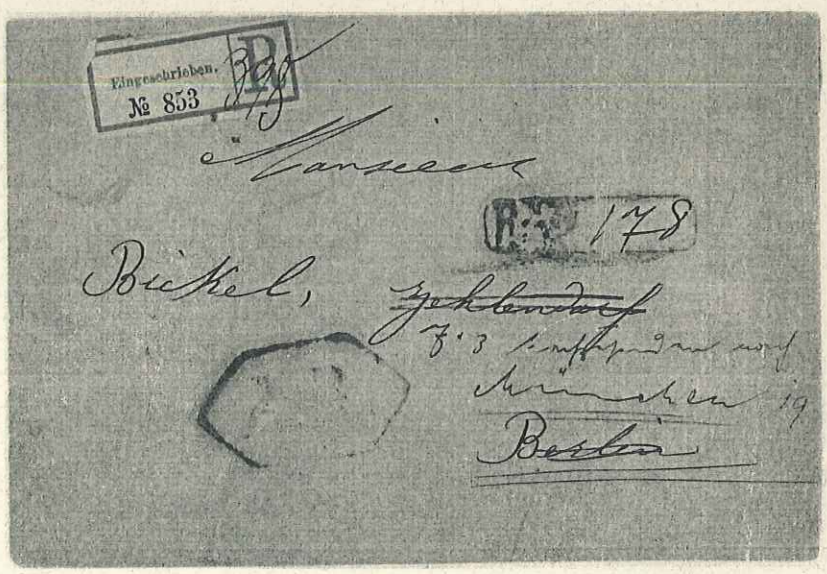 Eingeschrieben. R
№ 853 398
Monsieur
R 178
Bickel, Zehlendorf
z. Z. nach
München 19
Berlin